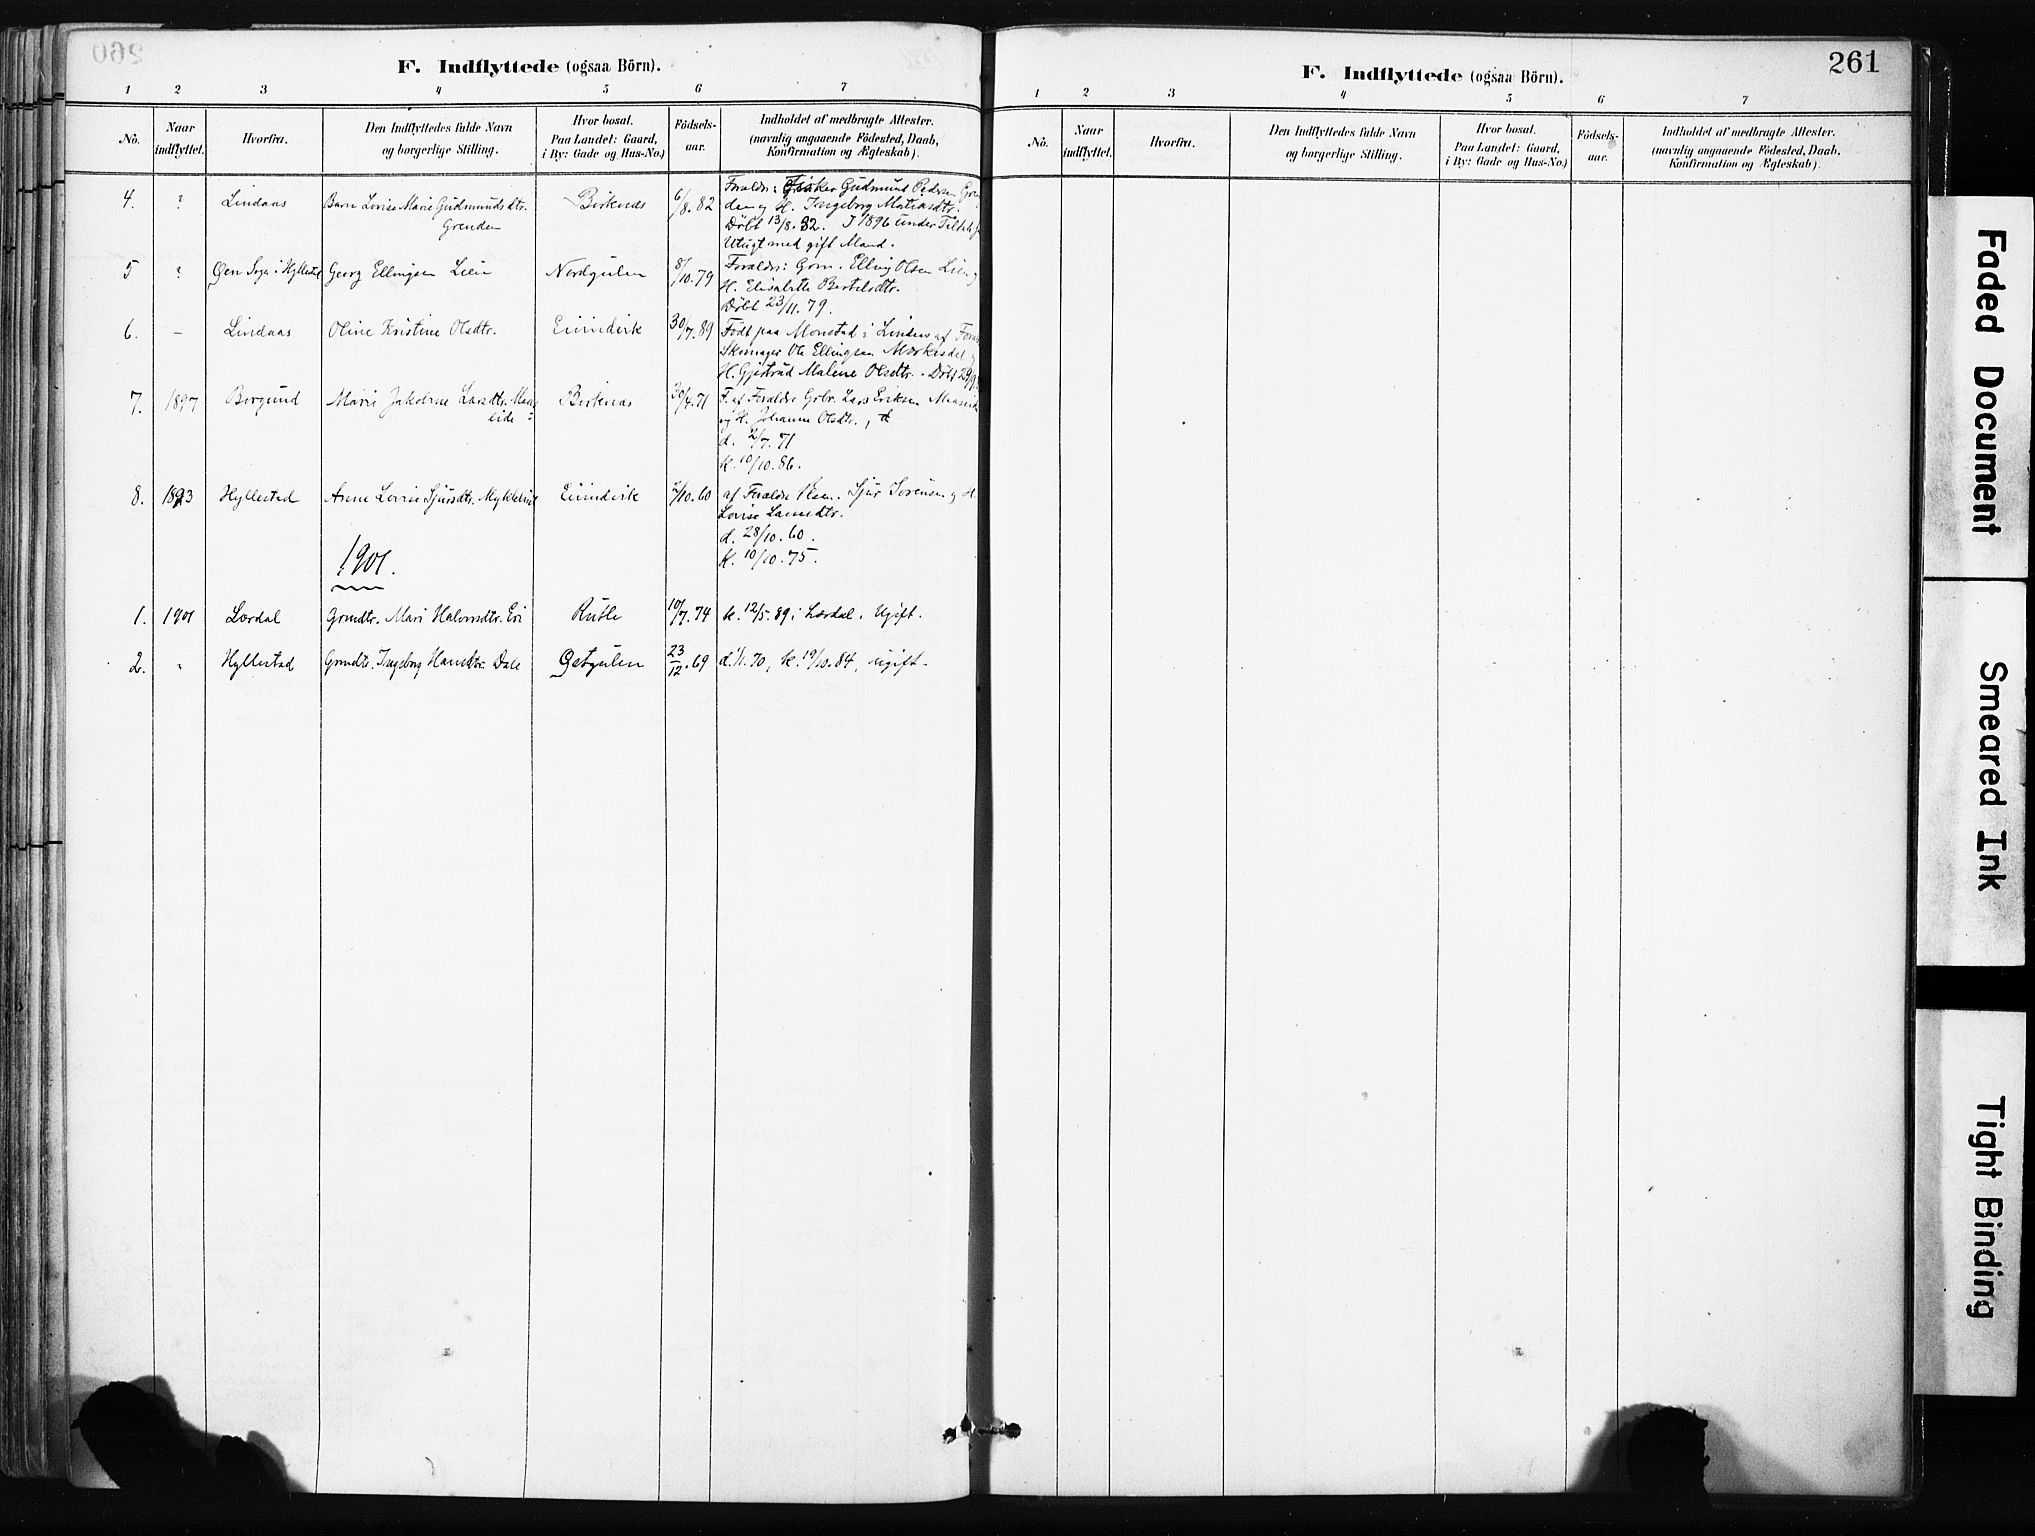 F. Indflyttede (ogsaa Börn).
1 2 3 4 5 6 7
No.
Naar
indflyttet.
Hvorfra.
Den Indflyttedes fulde Navn
og borgerlige Stilling.
Hvor bosat.
Paa Landet: Gaard,
i By: Gade og Hus-No.)
Födsels-
aar.
Indholdet af medbragte Attester.
(navnlig angaaende Födested, Daab,
Konfirmation og Ægteskab).
4. ? Lindaas Barn Lovise Marie Gudmundsdtr. Grenden Birknes 6/8.82
Forældr: Gudmund Pedersen
og H. Ingeborg Matiasdtr.
Døbt 13/8.82. I 1896 under Tiltale for
Utugt med gift Mand.
5 ? Sogn i Hyllestad Georg Ellingsen Lien Nordgulen 8/10.79
Forældr: Elling Olsen Lien og
H. Elisabette Bertelsdtr.
Døbt 23/11.79.
6. - Lindaas Oline Kristine Olsdtr. Eivindvik 30/7.89
Født paa Monstad i Lindaas af
Skomager Ole Ellingsen
H. Gjertrud Malene Olsdtr. Døbt
7. 1897 Borgund Marie Jakobine Larsdtr. Birknes 30/4.71
F. af Forældre Gbr. Lars Eriksen
og H. Johanne Olsdtr.,
d. 2/7.71
k. 10/10.86.
8. 1893 Hyllestad Anne Lovise Sjursdtr. Myklebust Eivindvik /10.60
af Forældre Sjur Sørensen og H.
Lovise
d. 28/10.60.
k. 10/10.75.
1901.
1. 1901 Lærdal Grmdtr. Mari Halvorsdtr. Eri Rutle 10/7.74 k. 12/5.89 i Lærdal. Ugift.
2. " Hyllestad Grmdtr. Ingeborg Hansdtr. Dale Østgulen 23/12.69 d. 1/1.70, k. 19/10.84, ugift.
261
F. Indflyttede (ogsaa Börn).
1 2 3 4 5 6 7
No.
Naar
indflyttet.
Hvorfra.
Den Indflyttedes fulde Navn
og borgerlige Stilling.
Hvor bosat.
Paa Landet: Gaard,
i By: Gade og Hus-No.)
Födsels-
aar.
Indholdet af medbragte Attester.
(navnlig angaaende Födested, Daab,
Konfirmation og Ægteskab).
Faded Document
Smeared Ink
Tight Binding